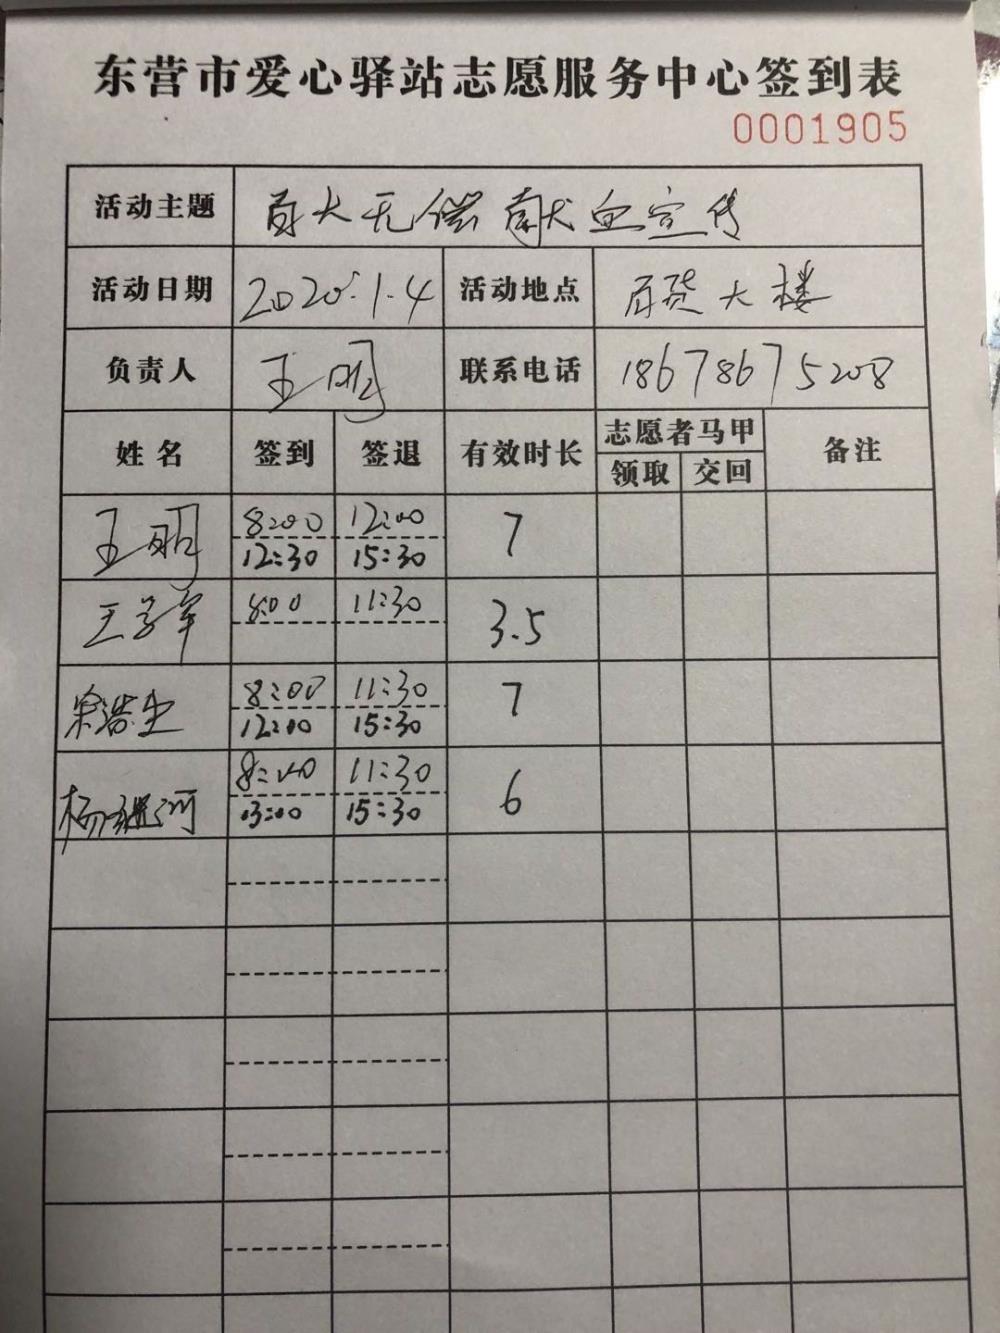 东营市爱心驿站志愿服务中心签到表
0001905
活动主题 百大无偿献血宣传
活动日期 2020.1.4 活动地点 百货大楼
负责人 王明 联系电话 18678675208
姓名 签到 签退 有效时长 志愿者马甲 备注
领取 交回
王明 8:00 12:00 7
12:30 15:30
王学军 8:00 11:30 3.5
8:00 11:30 7
12:00 15:30
杨继河 8:00 11:30 6
13:00 15:30